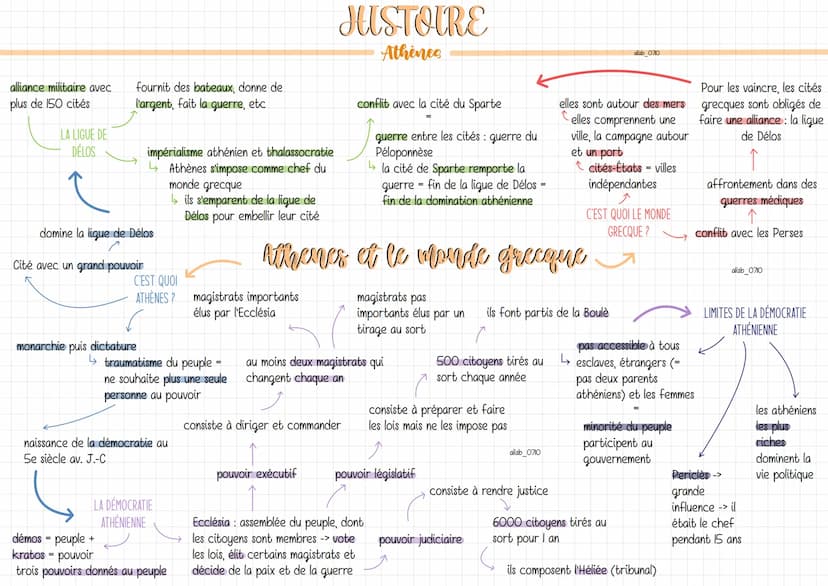 HISTOIRE
Athènes
allab_0710
alliance militaire avec
plus de 150 cités
fournit des bateaux, donne de
l'argent, fait la guerre, etc
LA LIGUE DE
DÉLOS
impérialisme athénien et thalassocratie
Athènes s'impose comme chef du
monde grecque
ils s'emparent de la ligue de
Délos pour embellir leur cité
conflit avec la cité du Sparte
=
guerre entre les cités : guerre du
Péloponnèse
la cité de Sparte remporte la
guerre = fin de la ligue de Délos =
fin de la domination athénienne
elles sont autour des mers
elles comprennent une
ville, la campagne autour
et un port
cités-États = villes
indépendantes
C'EST QUOI LE MONDE
GRECQUE ?
Pour les vaincre, les cités
grecques sont obligés de
faire une alliance : la ligue
de Délos
affrontement dans des
guerres médiques
conflit avec les Perses
domine la ligue de Délos
Cité avec un grand pouvoir
C'EST QUOI
ATHÈNES ?
Athenes et le monde grecque
allab_0710
monarchie puis dictature
traumatisme du peuple =
ne souhaite plus une seule
personne au pouvoir
naissance de la démocratie au
5e siècle av. J.-C
LA DÉMOCRATIE
ATHÉNIENNE
démos = peuple +
kratos = pouvoir
trois pouvoirs donnés au peuple
magistrats importants
élus par l'Ecclésia
magistrats pas
importants élus par un
tirage au sort
ils font partis de la Boulè
au moins deux magistrats qui
changent chaque an
500 citoyens tirés au
sort chaque année
consiste à diriger et commander
consiste à préparer et faire
les lois mais ne les impose pas
allab_0710
pouvoir exécutif
pouvoir législatif
Ecclésia : assemblée du peuple, dont
les citoyens sont membres -> vote
les lois, élit certains magistrats et
décide de la paix et de la guerre
pouvoir judiciaire
consiste à rendre justice
6000 citoyens tirés au
sort pour 1 an
ils composent l'Héliée (tribunal)
LIMITES DE LA DÉMOCRATIE
ATHÉNIENNE
pas accessible à tous
esclaves, étrangers (=
pas deux parents
athéniens) et les femmes
=
minorité du peuple
participent au
gouvernement
Periclès ->
grande
influence -> il
était le chef
pendant 15 ans
les athéniens
les plus
riches
dominent la
vie politique